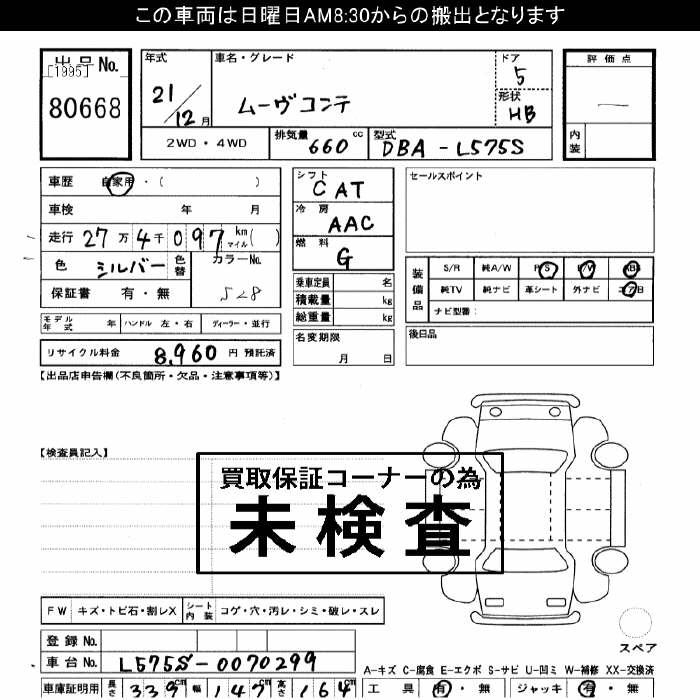 この車両は日曜日AM8:30からの搬出となります
出品No.
[1995]
80668
年式
21/12月
車名・グレード
ムーヴコンテ
ドア
5
形状
HB
2WD・4WD
排気量 660 cc
型式 DBA-L575S
評価点
内装
車歴 自家用・( )
車検 年 月
走行 27万4千097 km マイル( )
色 シルバー 色替 カラーNo. S28
保証書 有・無
モデル年式 年 ハンドル 左・右 ディーラー・並行
リサイクル料金 8,960 円 預託済
シフト CAT
冷房 AAC
燃料 G
乗車定員 名
積載量 kg
総重量 kg
名変期限 月 日
セールスポイント
装備品
S/R 純A/W P/S P/W ABS
純TV 純ナビ 革シート 外ナビ エアB
ナビ型番:
後日品
【出品店申告欄(不良箇所・欠品・注意事項等)】
【検査員記入】
買取保証コーナーの為
未検査
FW キズ・トビ石・割レX シート内装 コゲ・穴・汚レ・シミ・破レ・スレ
スペア
登録No.
車台No. L575S-0070299
A-キズ C-腐食 E-エクボ S-サビ U-凹ミ W-補修 XX-交換済
車庫証明用 長さ 339cm 幅 147cm 高さ 164cm
工具 有・無 ジャッキ 有・無